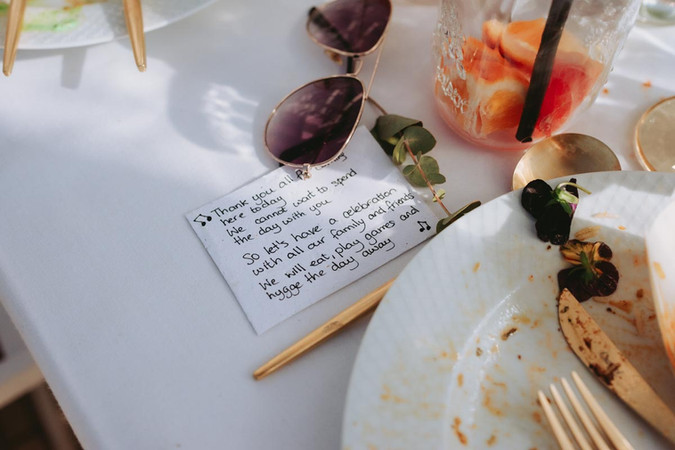 Thank you all
here today
We cannot wait to spend
the day with you
So let's have a celebration
with all our family and friends
We will eat, play games and
hygge the day away